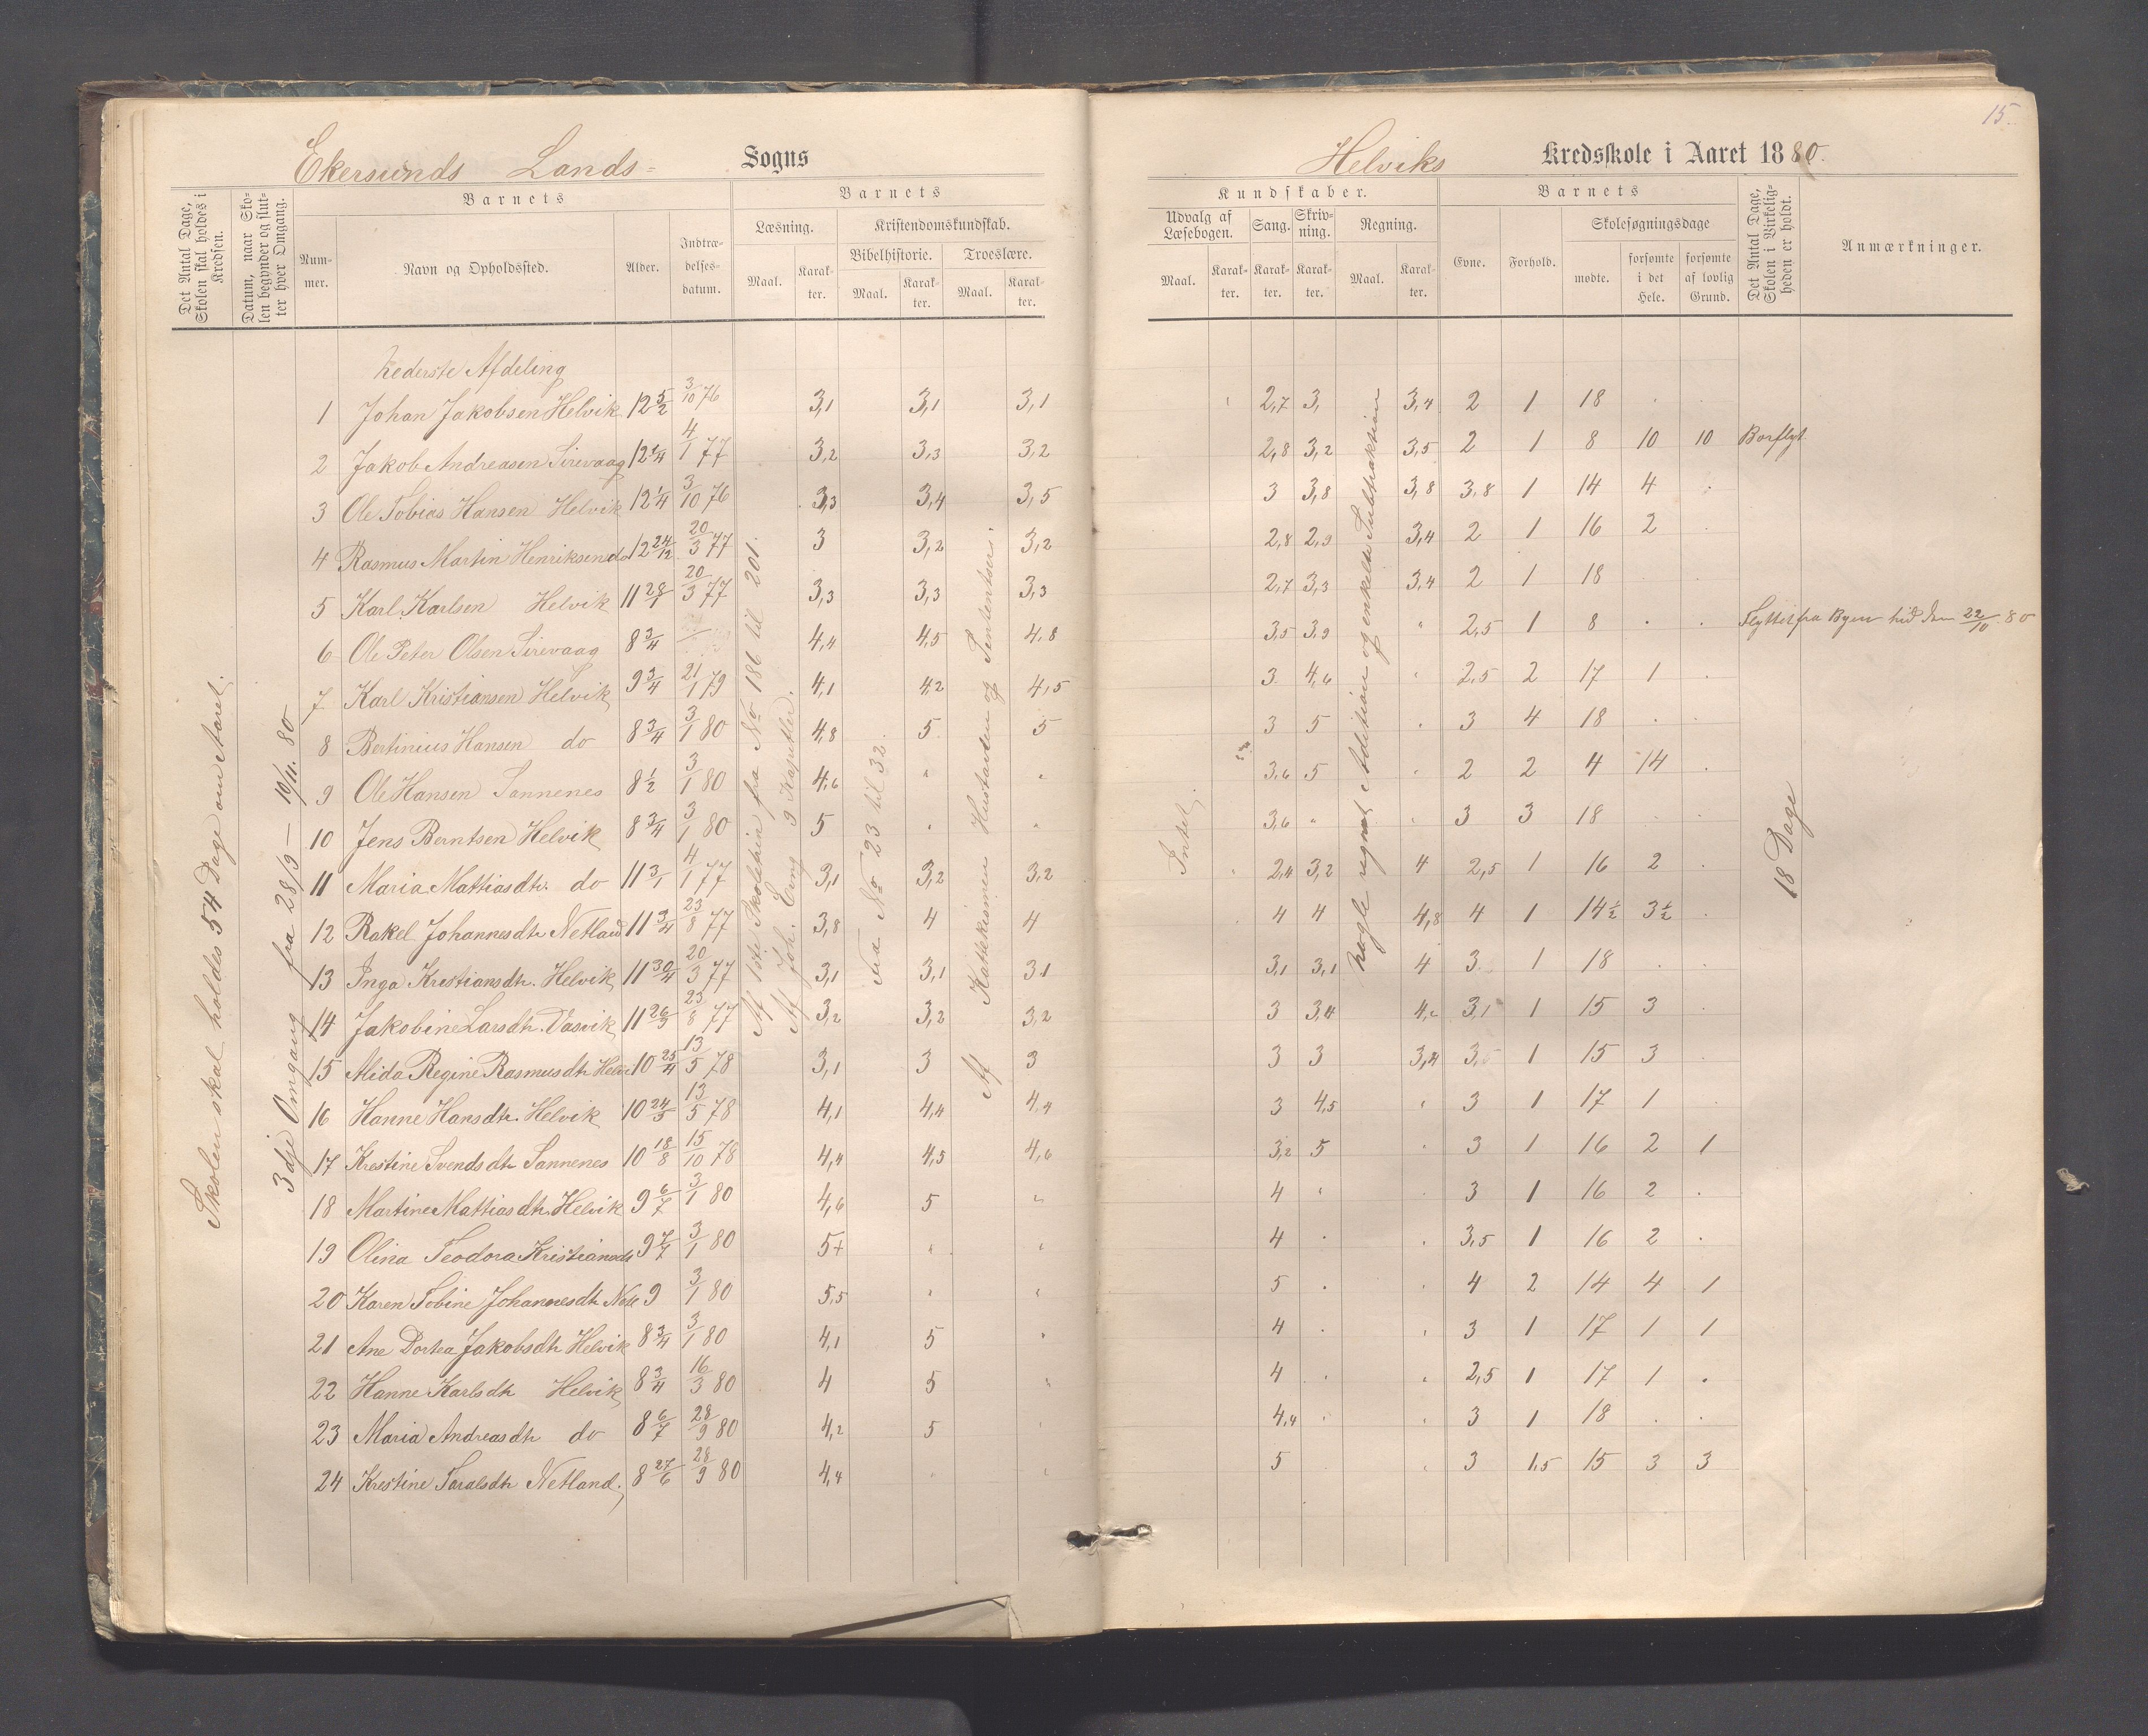 15.
Ekersunds Lands= Sogns
Helviks Kredsskole i Aaret 1880.
Det Antal Dage, Skolen skal holdes i Kredsen.
Datum, naar Skolen begynder og slutter hver Omgang.
Barnets
Nummer.
Navn og Opholdssted.
Alder.
Indtrædelsesdatum.
Barnets
Læsning.
Maal.
Karakter.
Kristendomskundskab.
Bibelhistorie.
Maal.
Karakter.
Troeslære.
Maal.
Karakter.
Kundskaber.
Udvalg af Læsebogen.
Maal.
Karakter.
Sang.
Karakter.
Skrivning.
Karakter.
Regning.
Maal.
Karakter.
Barnets
Evne.
Forhold.
Skolesøgningsdage
mødte.
forsømte i det Hele.
forsømte af lovlig Grund.
Det Antal Dage, Skolen i Virkeligheden er holdt.
Anmærkninger.
Skolen skal holdes 54 Dage om Aaret.
3dje Omgang fra 28/9 — 10/11. 80
Af 1ste Skoletrin fra No 186 til 201.
Af Joh. Evng 9 Kapitler.
Fra No 23 til 32.
Af Kattekismen Hustavlen og
Intet.
Nogle regnet Addition og enkelte Subtraktion
18 Dage
Nederste Afdeling
1 Johan Jakobsen Helvik 12 5/2 3/10 76 3,1 3,1 3,1 2,7 3, 3,4 2 1 18 . .
2 Jakob Andreasen Sirevaag 12 1/4 4/1 77 3,2 3,3 3,2 2,8 3,2 3,5 2 1 8 10 10 Borflyt
3 Ole Tobias Hansen Helvik 12 1/4 3/10 76 3,3 3,4 3,5 3 3,8 3,8 3,8 1 14 4 .
4 Rasmus Martin Henriksen do 12 24/12 20/3 77 3 3,2 3,2 2,8 2,9 3,4 2 1 16 2 .
5 Karl Karlsen Helvik 11 28/1 20/3 77 3,3 3,3 3,3 2,7 3,3 3,4 2 1 18 . .
6 Ole Peter Olsen Sirevaag 8 3/4 4,4 4,5 4,8 3,5 3,9 " 2,5 1 8 . . Flyttet fra Byen hid den 22/10 80
7 Karl Kristiansen Helvik 9 3/4 21/1 79 4,1 4,2 4,5 3 4,6 " 2,5 2 17 1 .
8 Bertinius Hansen do 8 3/4 3/1 80 4,8 5 5 3 5 " 3 4 18 . .
9 Ole Hansen Tannenes 8 1/2 3/1 80 4,6 " " 3,6 5 " 2 2 4 14 .
10 Jens Berntsen Helvik 8 3/4 3/1 80 5 " " 3,6 " " 3 3 18 . .
11 Maria Mattiasdtr. do 11 3/1 4/1 77 3,1 3,2 3,2 2,4 3,2 4 2,5 1 16 2 .
12 Rakel Johannesdtr Netland 11 3/4 23/8 77 3,8 4 4 4 4 4,8 4 1 14 1/2 3 1/2 .
13 Inga Kristiansdtr. Helvik 11 30/4 20/3 77 3,1 3,1 3,1 3,1 3,1 4 3 1 18 . .
14 Jakobine Larsdtr. Vasvik 11 26/9 23/8 77 3,2 3,2 3,2 3 3,4 3,1 1 15 3 .
15 Alida Regine Rasmusdtr Helv 10 25/4 13/5 78 3,1 3 3 3 3 1 15 3
16 Hanne Hansdtr. Helvik 10 24/5 13/5 78 4,1 4,4 4,4 3 4,5 " 3 1 17 1 .
17 Krestine Svendsdtr Tannenes 10 18/8 15/10 78 4,4 4,5 4,6 3,2 5 " 3 1 16 2 1
18 Martine Mattiasdtr. Helvik 9 6/7 3/1 80 4,6 5 " 4 " 3 1 16 2 .
19 Olina Teodora Kristiansdtr 9 7/7 3/1 80 5+ " " 4 . " 3,5 1 16 2 .
20 Karen Tobine Johannesdtr Netl 9 3/1 80 5,5 " " 5 . " 4 2 14 4 1
21 Ane Dortea Jakobsdtr Helvik 8 3/4 3/1 80 4,1 5 " 4 . " 3 1 17 1 1
22 Hanne Karlsdtr Helvik 8 3/4 16/3 80 4 5 " 4 . " 2,5 1 17 1 .
23 Maria Andreasdtr do 8 6/7 28/9 80 4,2 5 " 4,4 . " 3 1 18 . .
24 Krestine Taralsdtr Netland. 8 27/6 28/9 80 4,4 . " 5 " 3 1,5 15 3 3